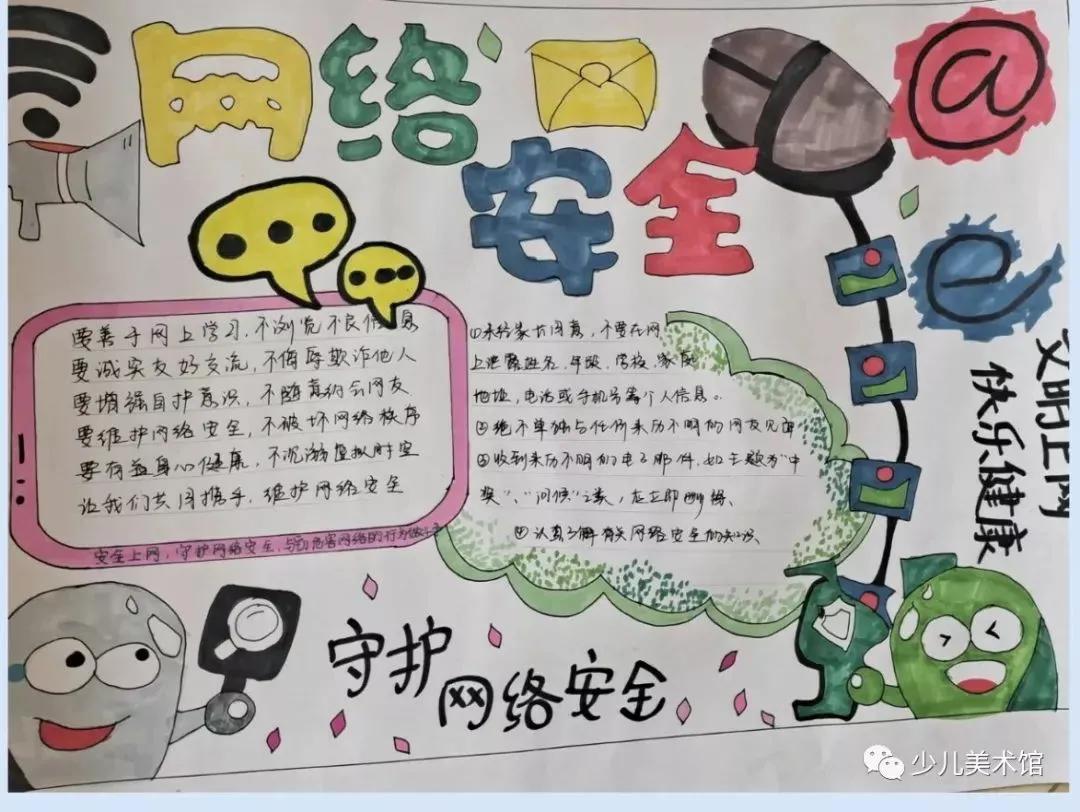 网络
安全
@
e
要善于网上学习,不浏览不良信息
要诚实友好交流,不侮辱欺诈他人
要增强自护意识,不随意约会网友
要维护网络安全,不破坏网络秩序
要有益身心健康,不沉溺虚拟时空
让我们共同携手,维护网络安全
安全上网,守护网络安全,与危害网络的行为做斗争
①未经家长同意,不要在网
上泄露姓名、年级、学校、家庭
地址,电话或手机号等个人信息。
②绝不单独与任何来历不明的网友见面
③收到来历不明的电子邮件,如主题为“中
奖”、“问候”之类,应立即删除、
④认真了解有关网络安全的知识、
文明上网
快乐健康
守护
网络安全
少儿美术馆